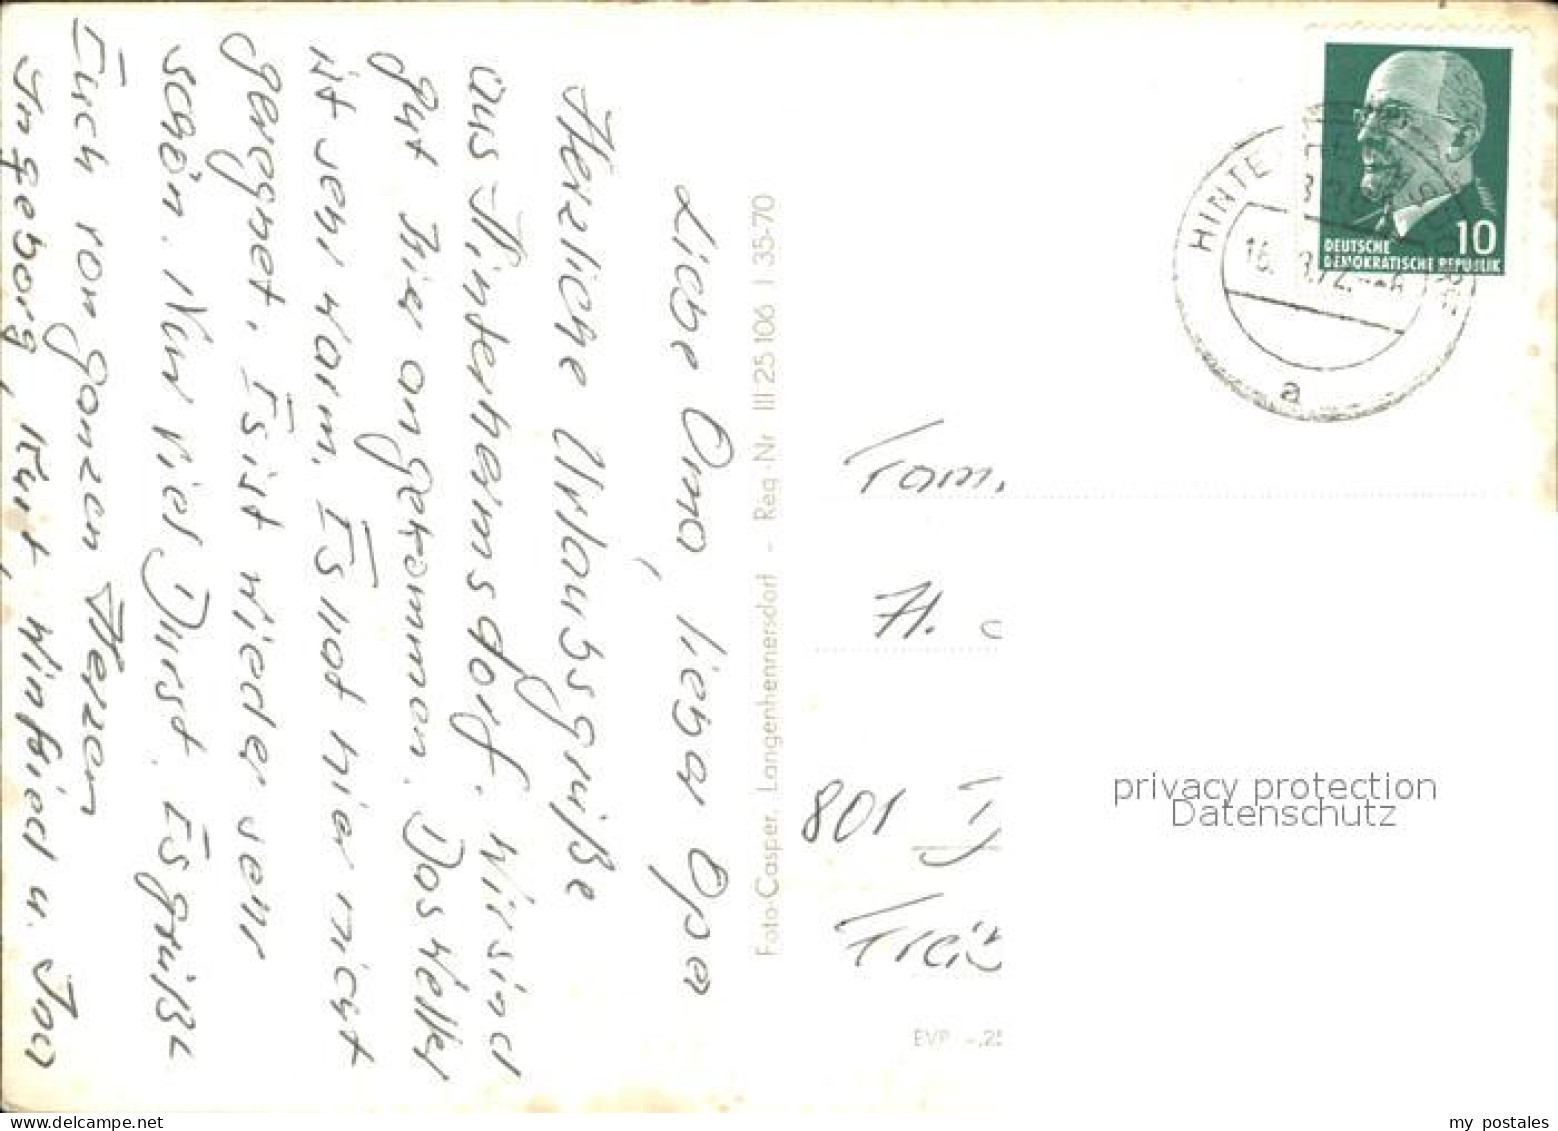 Liebe Oma, lieber Opa
Herzliche Urlaubsgrüße
aus Hinterhermsdorf. Wir sind
gut hier angekommen. Das Wetter
ist sehr warm. Es hat hier nicht
geregnet. Es ist wieder sehr
schön. Nur viel Durst. Es grüßt
Euch von ganzen Herzen
Ingeborg, Kurt, Winfried u. Ina
Foto-Casper, Langenhennersdorf - Reg.-Nr III 25 106 I 35-70
DEUTSCHE
DEMOKRATISCHE REPUBLIK
10
HINTE
16.
72.
a
Fam.
H.
801
EVP -,25
privacy protection
Datenschutz
my postales